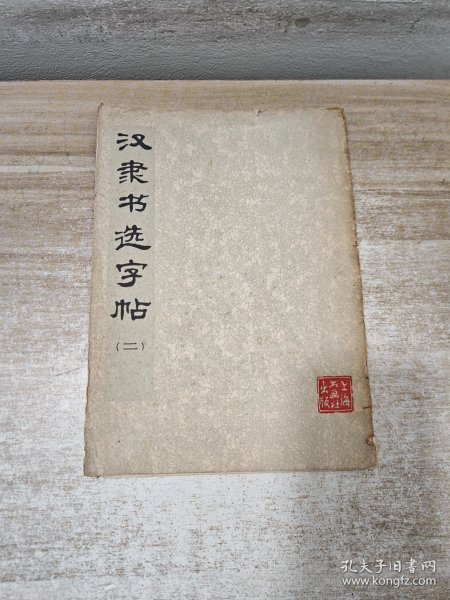 汉隶书选字帖
(二)
上海
书画社
出版
孔夫子旧书网
www.kongfz.com